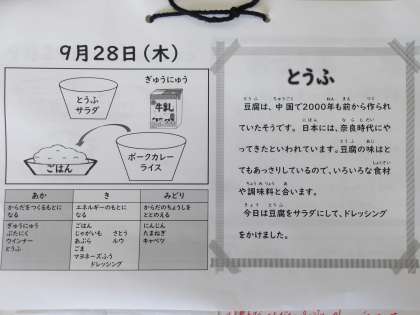 9月28日(木)
とうふ
サラダ
ぎゅうにゅう
牛乳
ごはん
ポークカレー
ライス
あか
き
みどり
からだをつくるもとに
なる
エネルギーのもとに
なる
からだのちょうしを
ととのえる
ぎゅうにゅう
ぶたにく
ウインナー
とうふ
ごはん
じゃがいも さとう
あぶら ルウ
ごま
マヨネーズふう
ドレッシング
にんじん
たまねぎ
キャベツ
とうふ
豆腐は、中国で2000年も前から作られ
ていたそうです。日本には、奈良時代にや
ってきたといわれています。豆腐の味はと
てもあっさりしているので、いろいろな食材
や調味料と合います。
今日は豆腐をサラダにして、ドレッシング
をかけました。